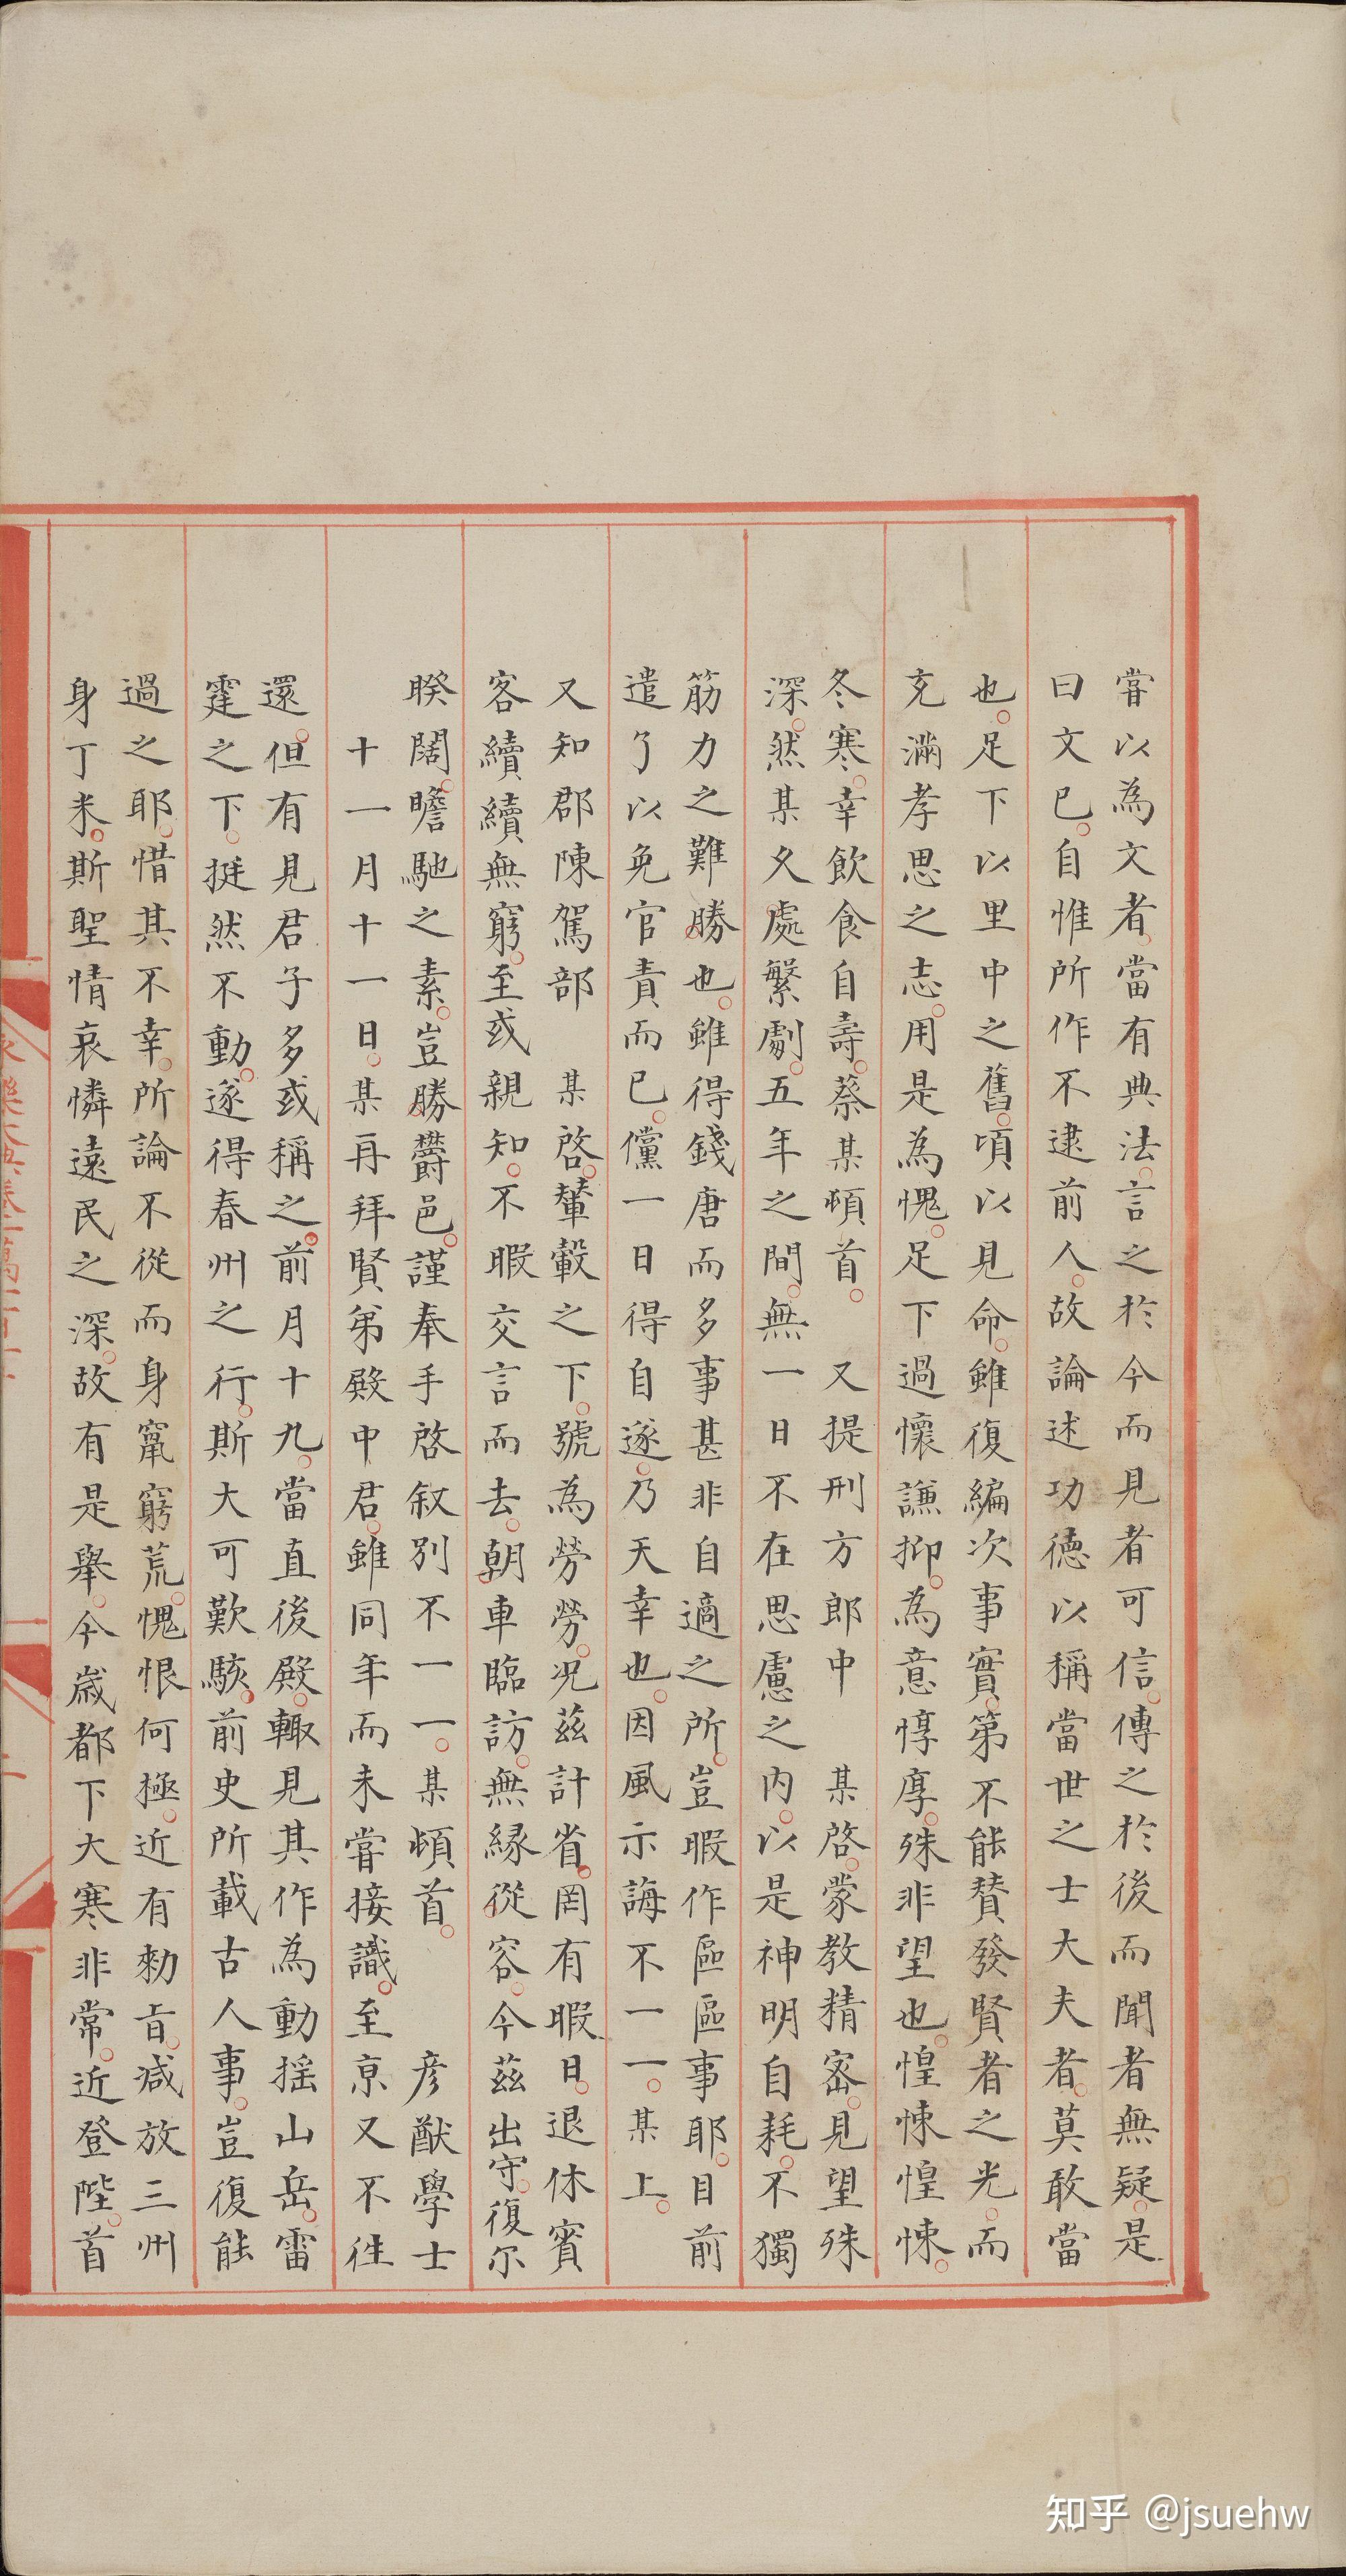 嘗以為文者當有典法言之於今而見者可信傳之於後而聞者無疑是
曰文已自惟所作不逮前人故論述功德以稱當世之士大夫者莫敢當
也足下以里中之舊頃以見命雖復編次事實第不能賛發賢者之光而
充滿孝思之志用是為愧足下過懷謙抑為意惇厚殊非望也惶悚惶悚
冬寒幸飲食自壽蔡某頓首 又提刑方郎中 某啓蒙教精宻見望殊
深然某久處繁劇五年之間無一日不在思慮之内以是神明自耗不獨
筋力之難勝也雖得錢唐而多事甚非自適之所豈暇作區區事耶目前
遣了以免官責而已儻一日得自遂乃天幸也因風示誨不一一某上
又知郡陳駕部 某啓輦轂之下號為勞勞况茲計省罔有暇日退休賓
客續續無窮至或親知不暇交言而去朝車臨訪無縁從容今茲出守復尔
睽闊瞻馳之素豈勝欝邑謹奉手啓叙别不一一某頓首 彦猷學士
十一月十一日某再拜賢弟殿中君雖同年而未嘗接識至京又不徃
還但有見君子多或稱之前月十九當直後殿輙見其作為動揺山岳雷
霆之下挺然不動遂得春州之行斯大可歎駭前史所載古人事豈復能
過之耶惜其不幸所論不從而身竄窮荒愧恨何極近有勑㫖减放三州
身丁米斯聖情哀憐逺民之深故有是舉今嵗都下大寒非常近登陛首
知乎 @jsuehw